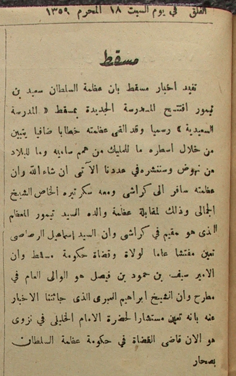 الفلق في يوم السبت ١٨ المحرم ١٣٥٩
مسقط
تفيد اخبار مسقط بان عظمة السلطان سعيد بن
تيمور افتتح المدرسة الجديدة بمسقط « المدرسة
السعيدية » رسميا وقد القى عظمته خطابا ضافيا يتبين
من خلال اسطره ما للمليك من همم ساميه وما للبلاد
من نهوض وسننشره في عددنا الآتي ان شاء الله وان
عظمته سافر الى كراشى ومعه سكرتيره الخاص الشيخ
الجمالى وذلك لمقابلة عظمة والده السيد تيمور المعظم
الذى هو مقيم في كراشى وان السيد اسماعيل الرصاصى
تعين مفتشا عاما لولاة وقضاة حكومة مسقط وان
الامير سيف بن حمود بن فيصل هو الوالى العام في
مطرح وان الشيخ ابراهيم العبرى الذى جائتنا الاخبار
عنه بانه تعين مستشارا لحضرة الامام الخليلى في نزوى
هو الان قاضى القضاة في حكومة عظمة السلطان
بصحار